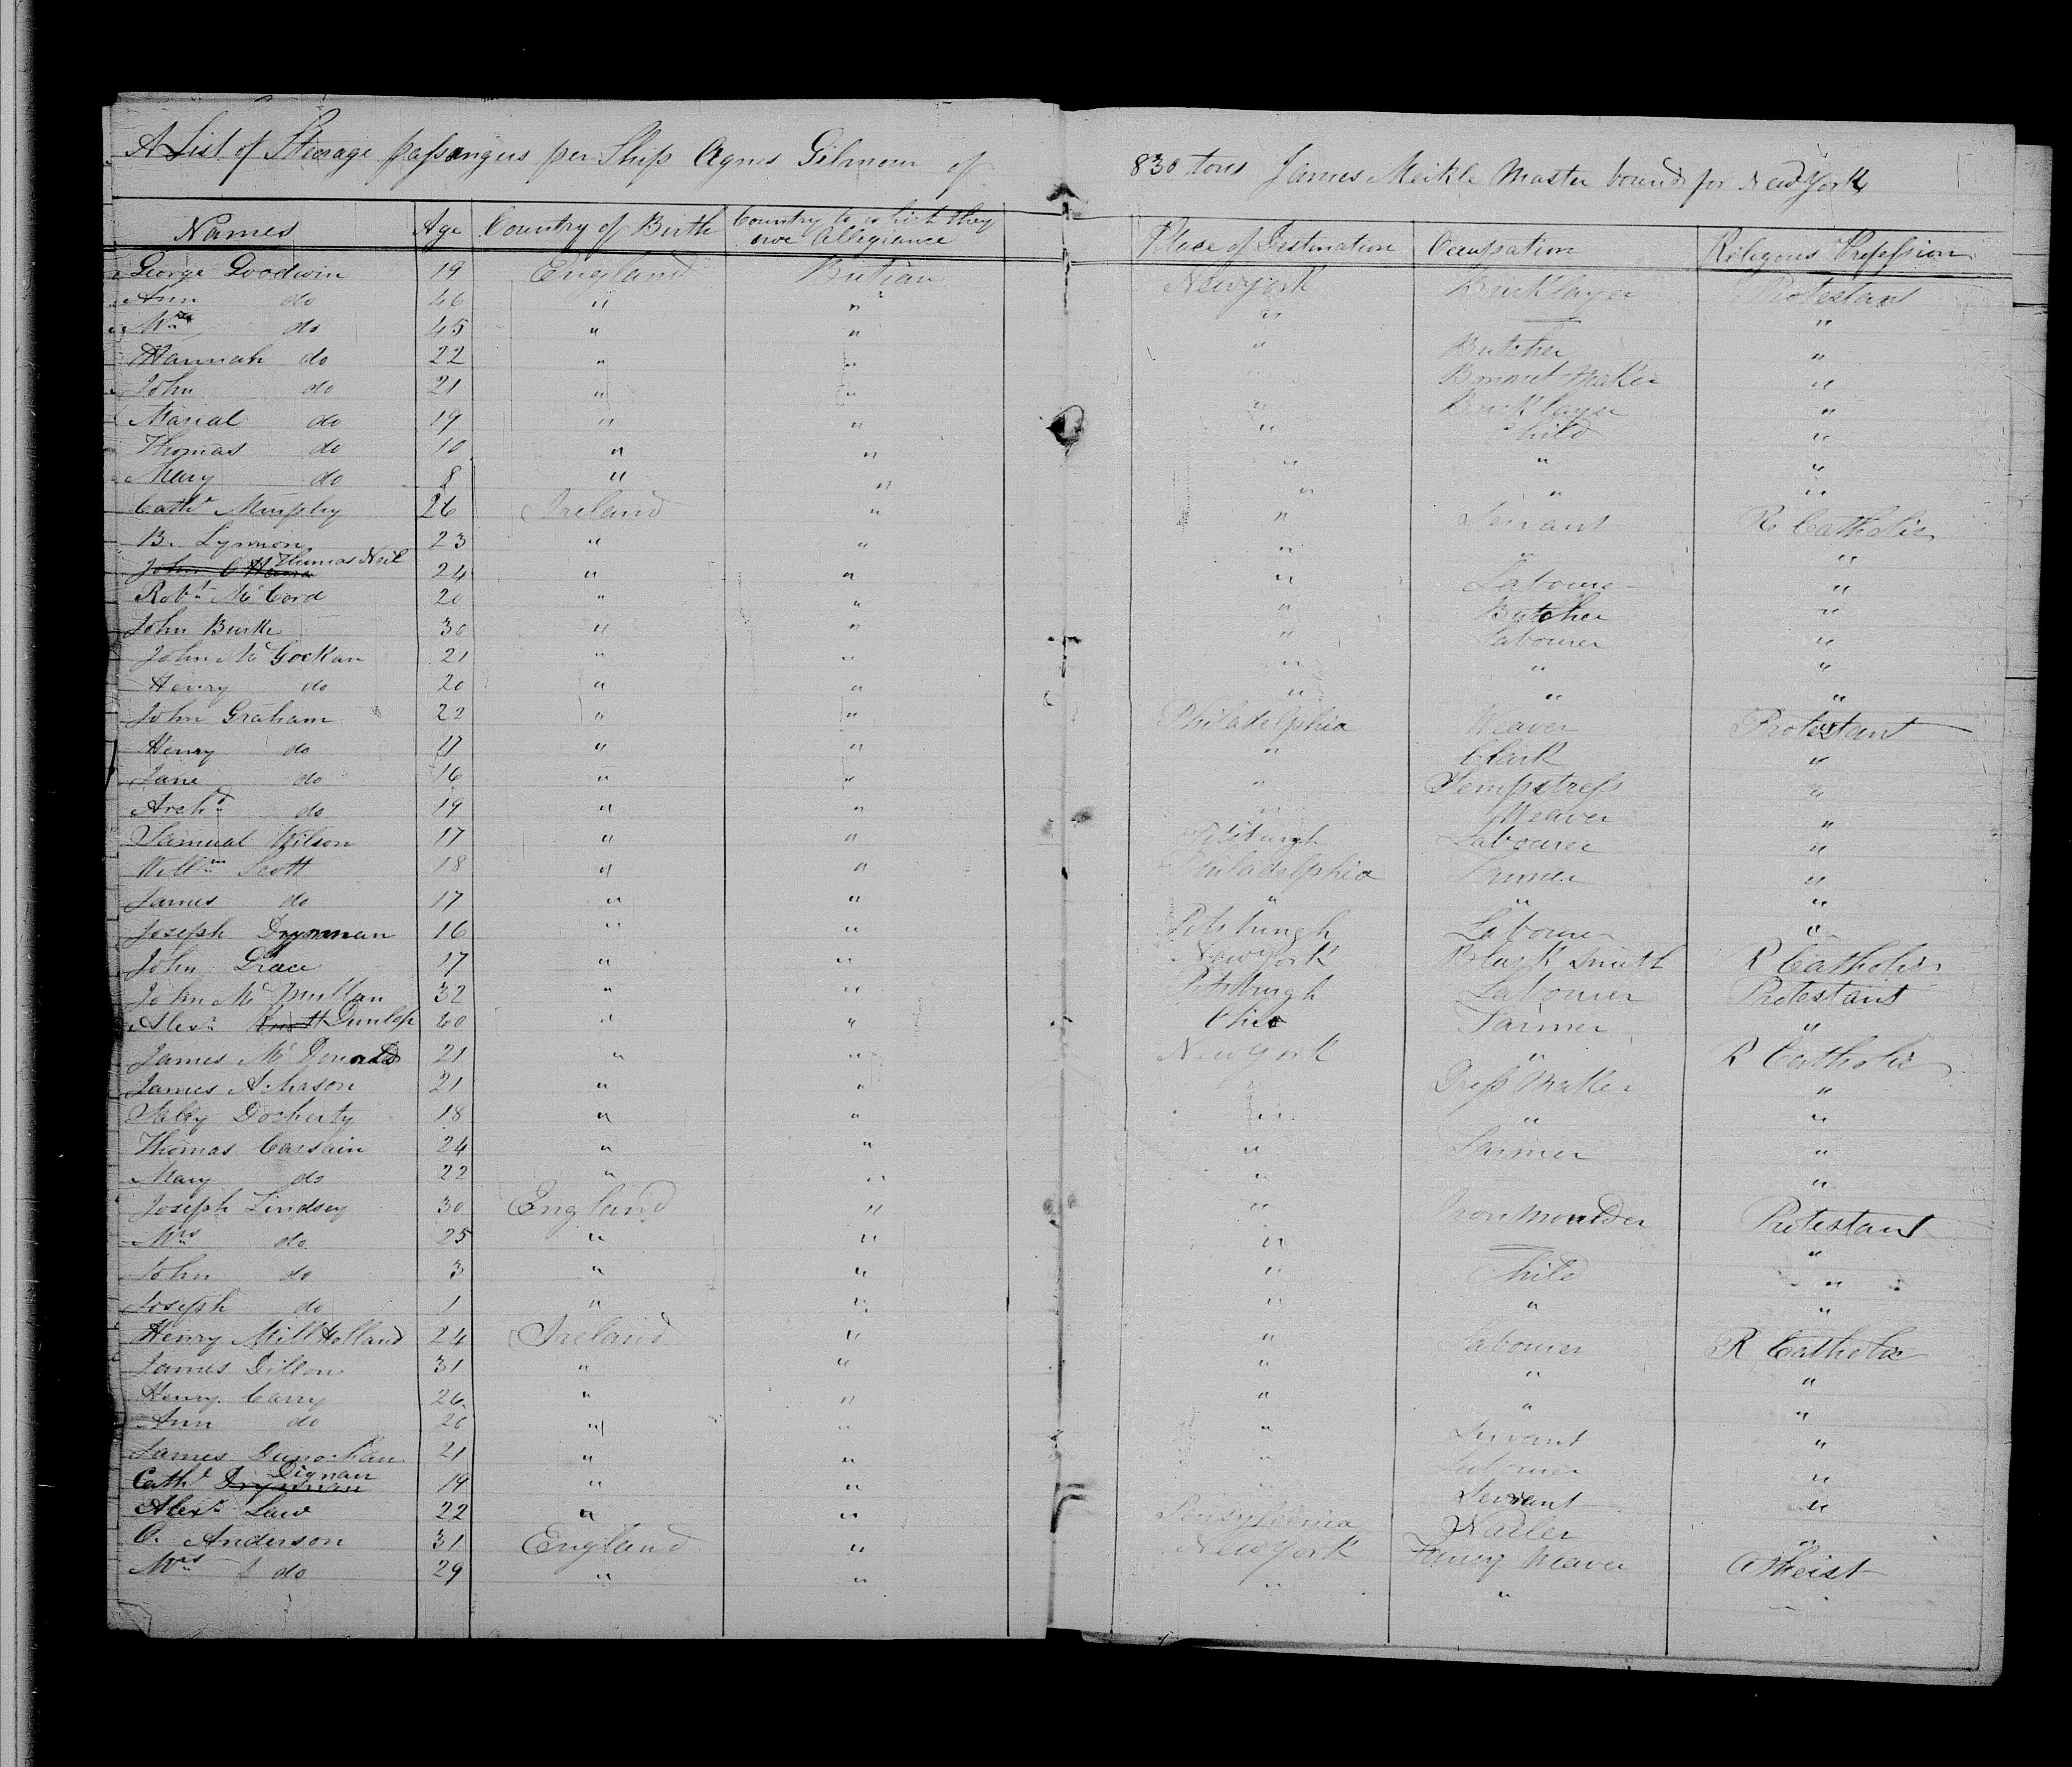 A List of Steerage passangers per Ship Agnes Gilmour of 830 tons James Meikle Master bound for New York
Names Age Country of Birth Country to which they owe Allegiance Place of Destination Occupation Religous Profession
George Goodwin 19 England Britian New york Bricklayer Protestant
Ann do 46 " " " — "
Wm do 45 " " " Butcher "
Hannah do 22 " " " Bonnet Maker "
John do 21 " " " Bricklayer "
do 19 " " " Child "
Thomas do 10 " " " " "
Mary do 8 " " " " "
Cathe Murphy 26 Ireland " " Servant R Catholic
B. Lynnon 23 " " " " "
Thomas Neil 24 " " " Labourer "
Robt Mc Cord 20 " " " Butcher "
John Burke 30 " " " Labourer "
John Mc Gockan 21 " " " " "
Henry do 20 " " " " "
John Graham 22 " " Philadelphia Weaver Protestant
Henry do 17 " " " Clark "
Jane do 16 " " " Sempstress "
Archd do 19 " " " Weaver "
Samual Wilson 17 " " Pitsburgh Labourer "
Willm Scott 18 " " Philadelphia "
James do 17 " " " " "
Joseph Drynnan 16 " " Pitsburgh Labourer "
John Grace 17 " " New York Black Smith R Catholic
John Mc Mullan 32 " " Pitsburgh Labourer Protestant
Alexr Dunlop 60 " " Ohio Farmer "
James Mc Donald 21 " " New york " R Catholic
James Achason 21 " " " Dress Maker "
Docherty 18 " " " " "
Thomas Cassain 24 " " " Farmer "
Mary do 22 " " " "
Joseph Lindsey 30 England " " Iron Moulder Protestant
Mrs do 25 " " " — "
John do 3 " " " Child "
Joseph do 1 " " " " "
Henry Mill Holland 24 Ireland " " Labourer R Catholic
James Dillon 31 " " " " "
Henry Carry 26 " " " " "
Ann do 26 " " " Servant "
James 21 " " " Labourer "
Cathe Dignan 19 " " " Servant "
Alexr Law 22 " " Pensylvenia Nailer "
O. Anderson 31 England " New York Fancy Weaver Atheist
Mrs do 29 " " " " "